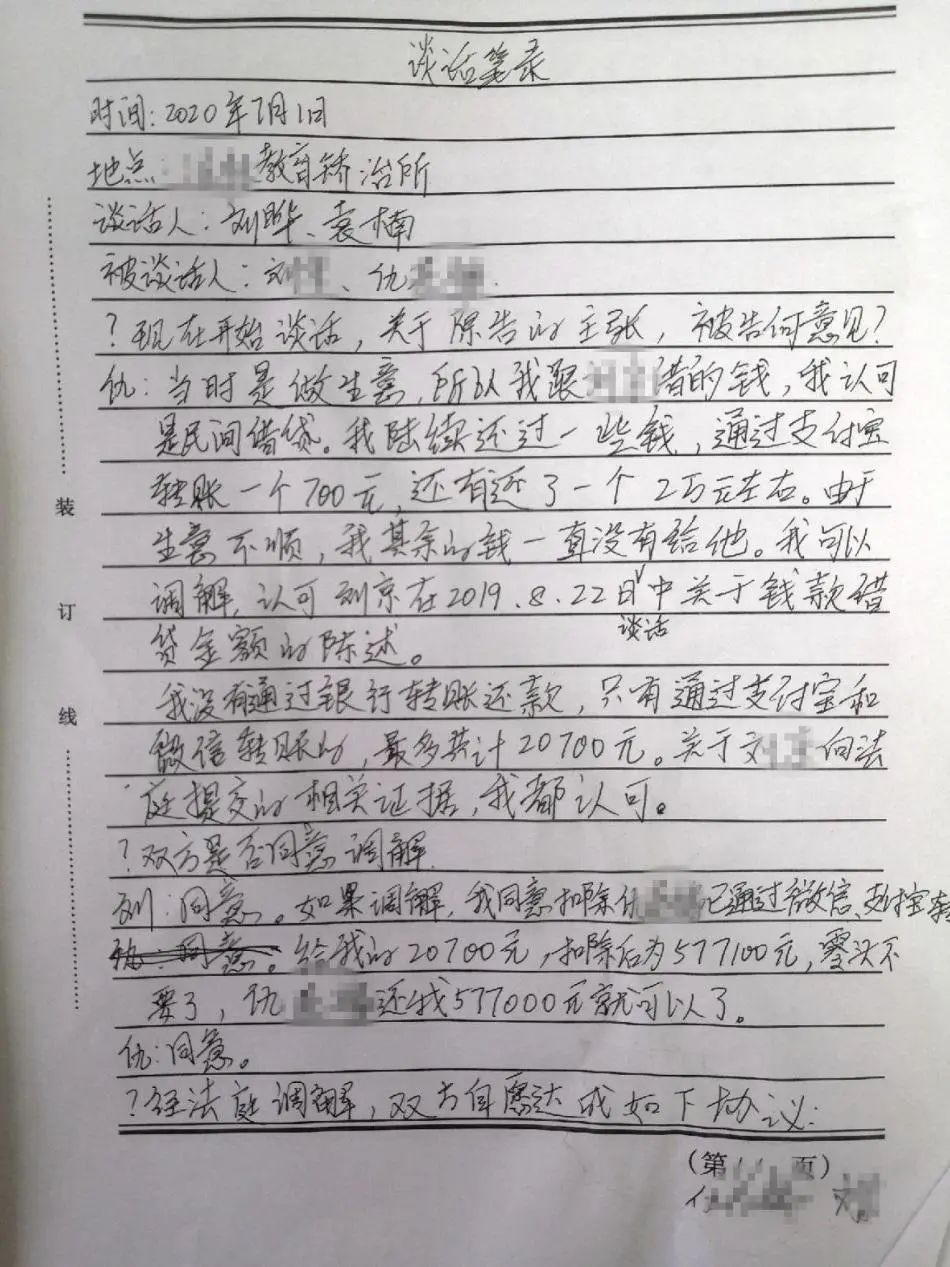 谈话笔录
时间:2020年7月1日
地点 教育矫治所
谈话人:刘晔、袁楠
被谈话人:刘 、仇
?现在开始谈话,关于原告的主张,被告何意见?
仇:当时是做生意,所以我跟 借的钱,我认可
是民间借贷。我陆续还过一些钱,通过支付宝
转账一个700元,还有还了一个2万元左右。由于
生意不顺,我其余的钱一直没有给他。我可以
调解,认可刘京在2019.8.22日谈话中关于钱款借
贷金额的陈述。
我没有通过银行转账还款,只有通过支付宝和
微信转账的,最多共计20700元。关于刘 向法
庭提交的相关证据,我都认可。
?双方是否同意调解
刘:同意。如果调解,我同意扣除仇 已通过微信、支付宝转
给我的20700元,扣除后为577100元,零头不
要了,仇 还我577000元就可以了。
仇:同意。
?经法庭调解,双方自愿达成如下协议:
(第 页)
仇 刘
装
订
线